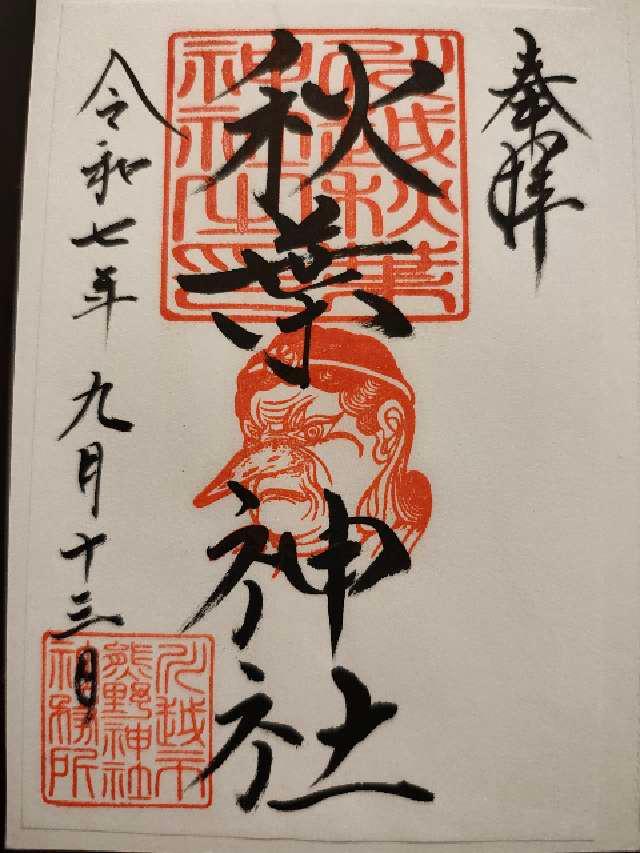 奉拝
秋葉神社
令和七年九月十三日
川越秋葉
神社之印
川越市
熊野神社
社務所